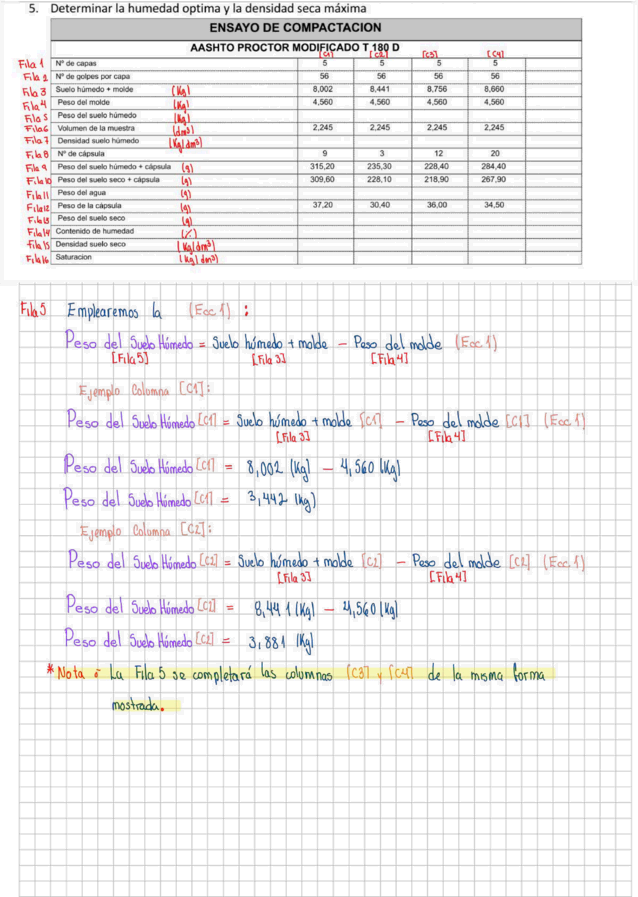 5. Determinar la humedad optima y la densidad seca máxima
ENSAYO DE COMPACTACION
AASHTO PROCTOR MODIFICADO T 180 D
[C1] [C2] [C3] [C4]
Fila 1 Nº de capas 5 5 5 5
Fila 2 Nº de golpes por capa 56 56 56 56
Fila 3 Suelo húmedo + molde (Kg) 8,002 8,441 8,756 8,660
Fila 4 Peso del molde (Kg) 4,560 4,560 4,560 4,560
Fila 5 Peso del suelo húmedo (Kg)
Fila 6 Volumen de la muestra (dm3) 2,245 2,245 2,245 2,245
Fila 7 Densidad suelo húmedo (Kg/dm3)
Fila 8 Nº de cápsula 9 3 12 20
Fila 9 Peso del suelo húmedo + cápsula (g) 315,20 235,30 228,40 284,40
Fila 10 Peso del suelo seco + cápsula (g) 309,60 228,10 218,90 267,90
Fila 11 Peso del agua (g)
Fila 12 Peso de la cápsula (g) 37,20 30,40 36,00 34,50
Fila 13 Peso del suelo seco (g)
Fila 14 Contenido de humedad (%)
Fila 15 Densidad suelo seco (Kg/dm3)
Fila 16 Saturacion (Kg/dm3)
Fila 5 Emplearemos la (Ecc 1) :
Peso del Suelo Húmedo = Suelo húmedo + molde − Peso del molde (Ecc. 1)
[Fila 5] [Fila 3] [Fila 4]
Ejemplo Columna [C1]:
Peso del Suelo Húmedo [C1] = Suelo húmedo + molde [C1] − Peso del molde [C1] (Ecc. 1)
[Fila 3] [Fila 4]
Peso del Suelo Húmedo [C1] = 8,002 (Kg) − 4,560 (Kg)
Peso del Suelo Húmedo [C1] = 3,442 (Kg)
Ejemplo Columna [C2]:
Peso del Suelo Húmedo [C2] = Suelo húmedo + molde [C2] − Peso del molde [C2] (Ecc. 1)
[Fila 3] [Fila 4]
Peso del Suelo Húmedo [C2] = 8,441 (Kg) − 4,560 (Kg)
Peso del Suelo Húmedo [C2] = 3,881 (Kg)
* Nota : La Fila 5 se completará las columnas [C3] y [C4] de la misma forma
mostrada.